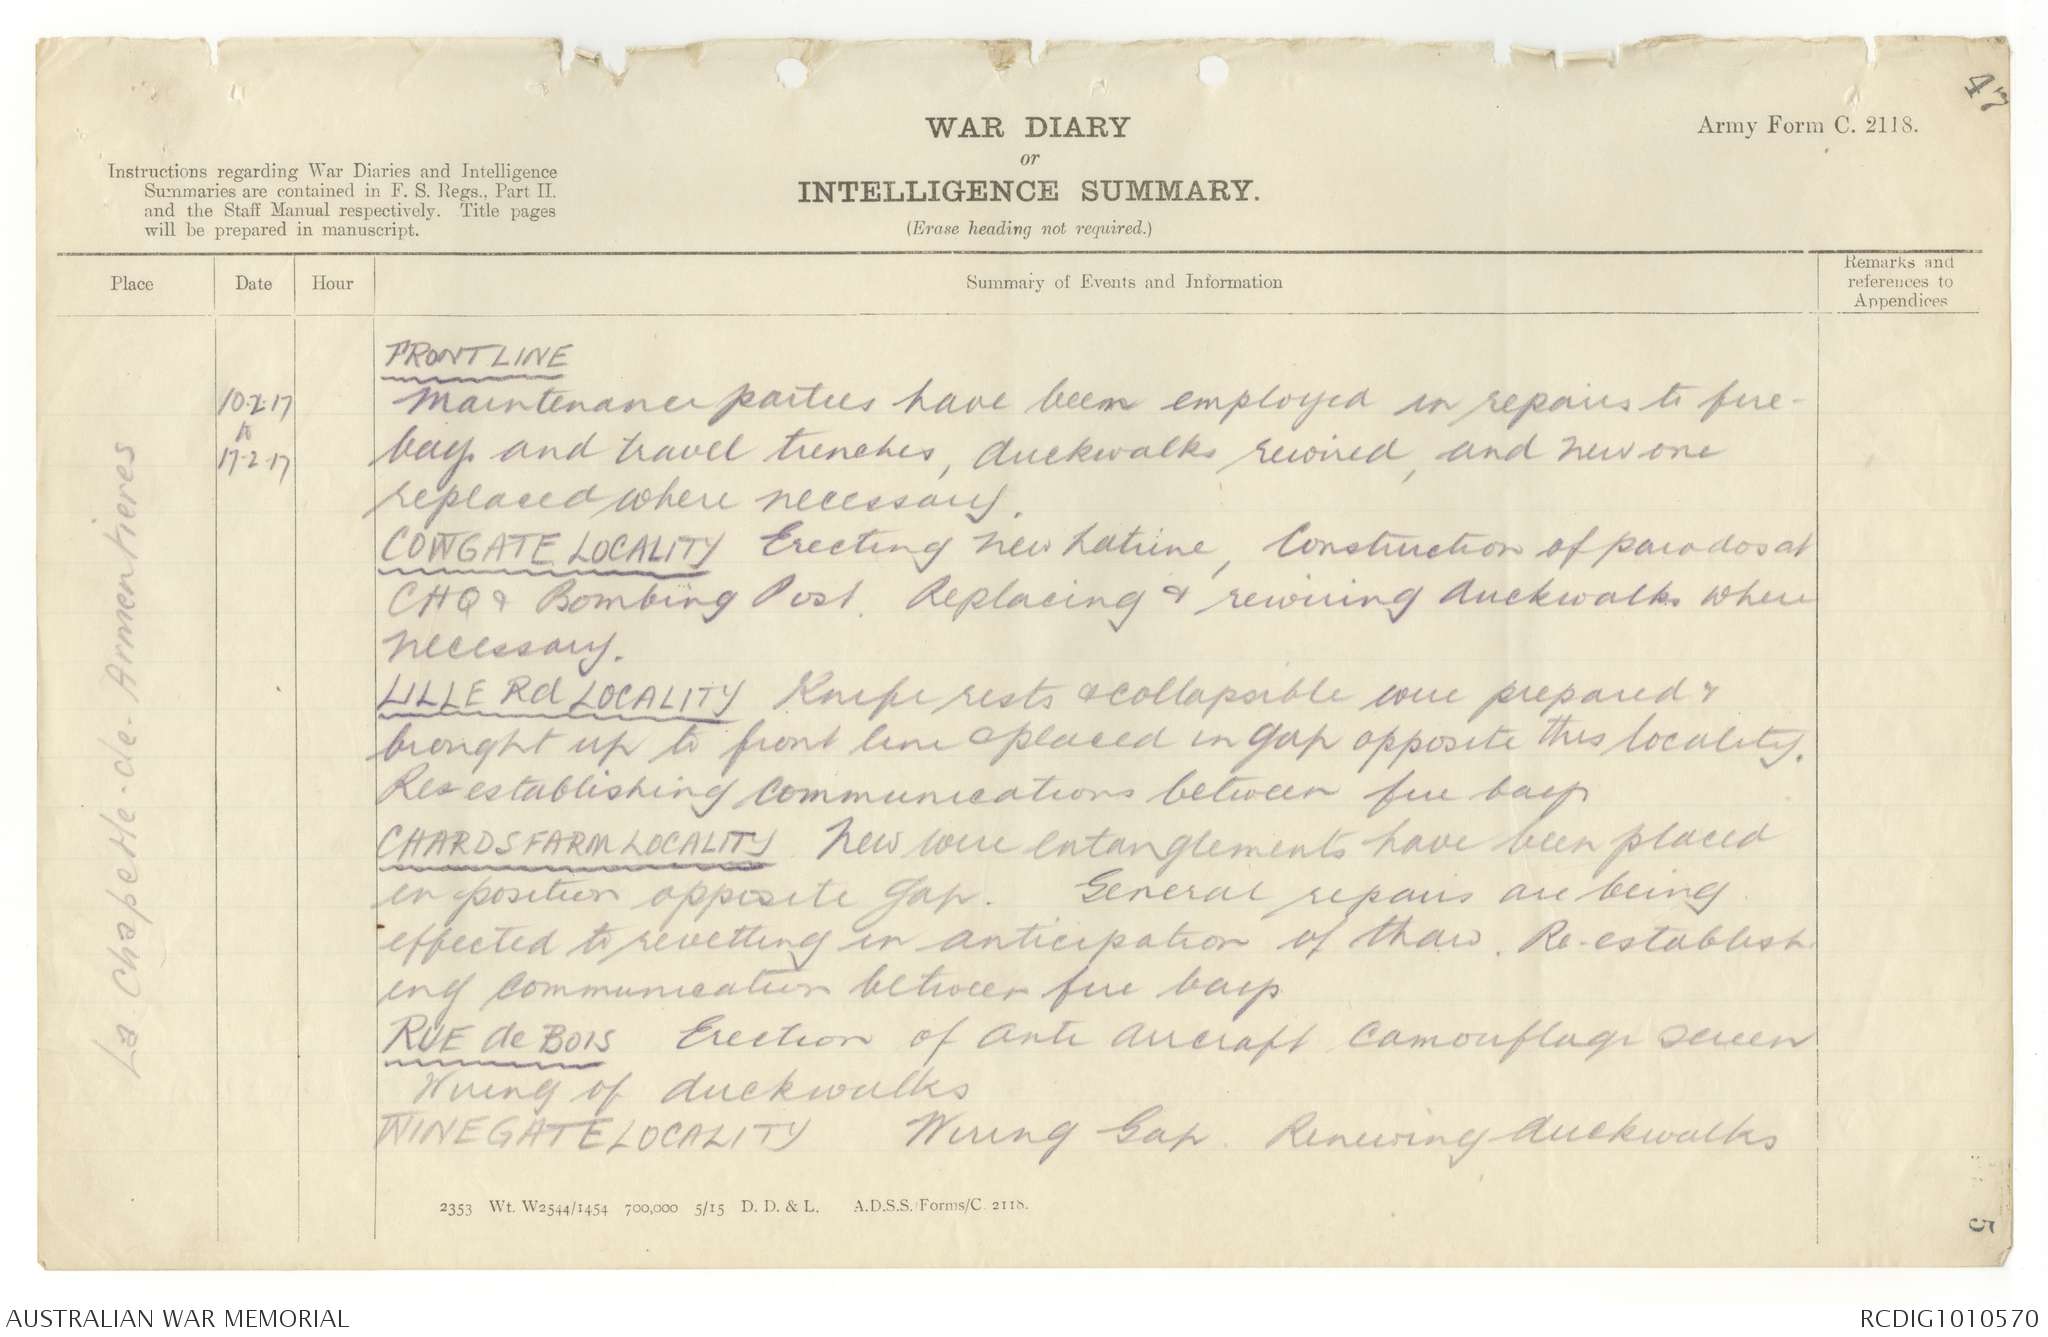 47
WAR DIARY
or
INTELLIGENCE SUMMARY.
(Erase heading not required.)
Army Form C. 2118.
Instructions regarding War Diaries and Intelligence
Summaries are contained in F. S. Regs., Part II.
and the Staff Manual respectively. Title pages
will be prepared in manuscript.
Place
Date
Hour
Summary of Events and Information
Remarks and
references to
Appendices
La-Chapelle-de-Armentieres
10.2.17
to
17.2.17
FRONT LINE
Maintenance parties have been employed in repairs to fire-
bays and travel trenches, duckwalks rewired, and new one
replaced where necessary.
COWGATE LOCALITY Erecting new Latrine, Construction of parados at
CHQ & Bombing Post. Replacing & rewiring duckwalks where
necessary.
LILLE Rd LOCALITY Knife rests & collapsible wire prepared &
brought up to front line & placed in gap opposite this locality.
Re-establishing communications between fire bays
CHARDS FARM LOCALITY New wire entanglements have been placed
in position opposite Gap. General repairs are being
effected to revetting in anticipation of thaw. Re-establish
ing communication between fire bays
RUE de BOIS Erection of anti aircraft camouflage screen
Wiring of duckwalks
WINEGATE LOCALITY Wiring Gap. Renewing duckwalks
2353 Wt. W2544/1454 700,000 5/15 D. D. & L. A.D.S.S./Forms/C. 2118.
5
AUSTRALIAN WAR MEMORIAL
RCDIG1010570